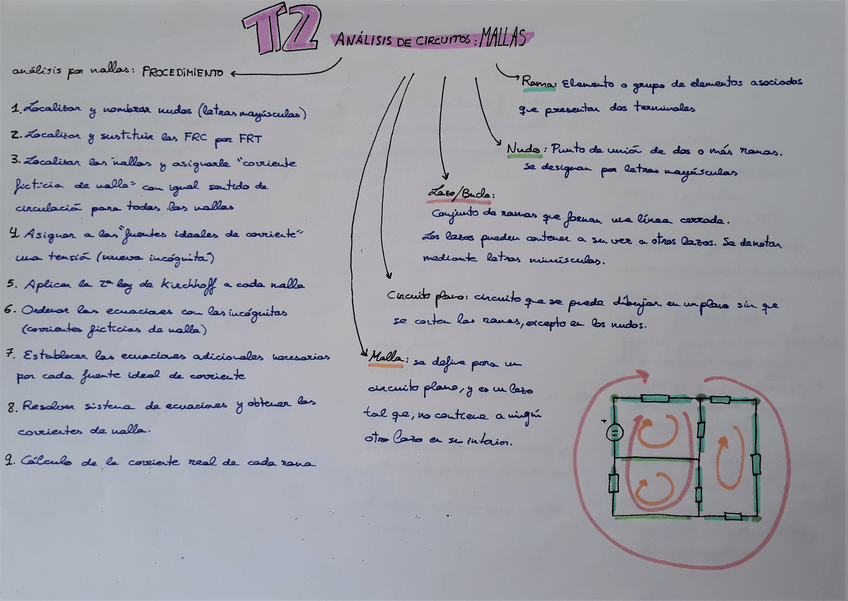 T2 ANÁLISIS DE CIRCUITOS: MALLAS
análisis por mallas: PROCEDIMIENTO
1. Localizar y nombrar nudos (letras mayúsculas)
2. Localizar y sustituir las FRC por FRT
3. Localizar las mallas y asignarle "corriente
ficticia de malla" con igual sentido de
circulación para todas las mallas
4 Asignar a las "fuentes ideales de corriente"
una tensión (nueva incógnita)
5. Aplicar la 2ª ley de Kirchhoff a cada malla
6. Ordenar las ecuaciones con las incógnitas
(corrientes ficticias de malla)
7. Establecer las ecuaciones adicionales necesarias
por cada fuente ideal de corriente
8. Resolver sistema de ecuaciones y obtener las
corrientes de malla.
9. Cálculo de la corriente real de cada rama
Rama: Elemento o grupo de elementos asociados
que presentan dos terminales
Nudo: Punto de unión de dos o más ramas.
Se designan por letras mayúsculas
Lazo/Bucle:
Conjunto de ramas que forman una línea cerrada.
Los lazos pueden contener a su vez a otros lazos. Se denotan
mediante letras minúsculas.
Circuito plano: circuito que se pueda dibujar en un plano sin que
se corten las ramas, excepto en los nudos.
Malla: se define para un
circuito plano, y es un lazo
tal que, no contiene a ningún
otro lazo en su interior.
+